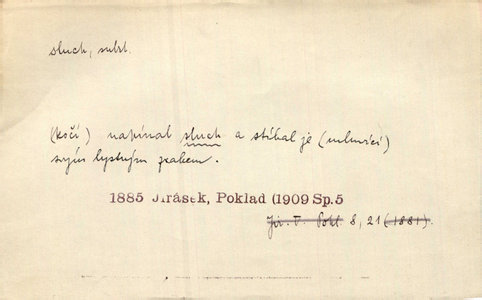 sluch, subst.
(kočí) napínal sluch a stíhal je (mluvící)
svým bystrým zrakem.
1885 Jirásek, Poklad (1909 Sp.5
Jir. P. Pokl. 8, 21 (1881).